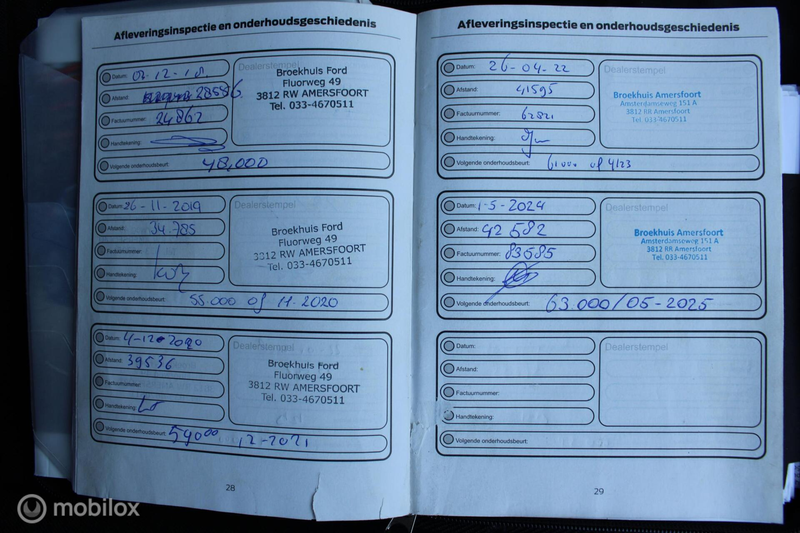 Afleveringsinspectie en onderhoudsgeschiedenis
Datum: 07-12-18
Dealerstempel
Broekhuis Ford
Fluorweg 49
3812 RW AMERSFOORT
Tel. 033-4670511
Afstand: 28556
Factuurnummer: 24862
Handtekening:
Volgende onderhoudsbeurt: 48.000
Datum: 26-11-2019
Dealerstempel
Broekhuis Ford
Fluorweg 49
3812 RW AMERSFOORT
Tel. 033-4670511
Afstand: 34.785
Factuurnummer:
Handtekening:
Volgende onderhoudsbeurt: 55.000 of 11-2020
Datum: 4-12-2020
Dealerstempel
Broekhuis Ford
Fluorweg 49
3812 RW AMERSFOORT
Tel. 033-4670511
Afstand: 39536
Factuurnummer:
Handtekening:
Volgende onderhoudsbeurt: 59000 12-2021
28
Afleveringsinspectie en onderhoudsgeschiedenis
Datum: 26-04-22
Dealerstempel
Broekhuis Amersfoort
Amsterdamseweg 151 A
3812 RR Amersfoort
Tel. 033-4670511
Afstand: 41595
Factuurnummer: 62821
Handtekening:
Volgende onderhoudsbeurt: of 4/23
Datum: 1-5-2024
Dealerstempel
Broekhuis Amersfoort
Amsterdamseweg 151 A
3812 RR Amersfoort
Tel. 033-4670511
Afstand: 42582
Factuurnummer: 83585
Handtekening:
Volgende onderhoudsbeurt: 63.000/05-2025
Datum:
Dealerstempel
Afstand:
Factuurnummer:
Handtekening:
Volgende onderhoudsbeurt:
29
mobilox